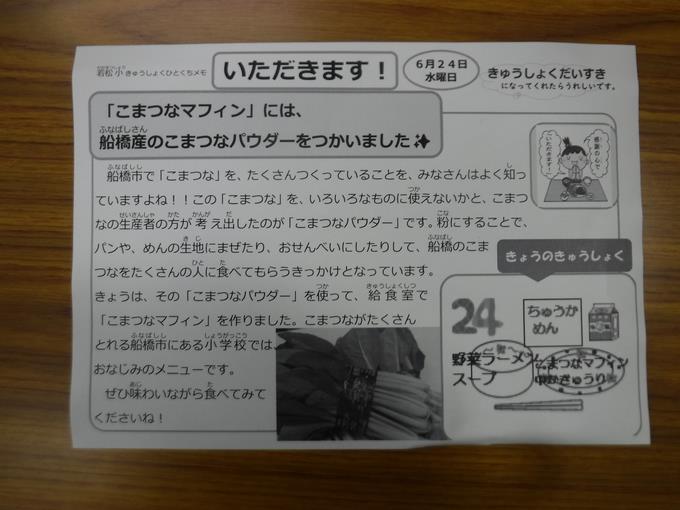 若松小きゅうしょくひとくちメモ
いただきます！
6月24日
水曜日
きゅうしょくだいすき
になってくれたらうれしいです。
「こまつなマフィン」には、
船橋産のこまつなパウダーをつかいました
船橋市で「こまつな」を、たくさんつくっていることを、みなさんはよく知っ
ていますよね！！この「こまつな」を、いろいろなものに使えないかと、こまつ
なの生産者の方が考え出したのが「こまつなパウダー」です。粉にすることで、
パンや、めんの生地にまぜたり、おせんべいにしたりして、船橋のこま
つなをたくさんの人に食べてもらうきっかけとなっています。
きょうは、その「こまつなパウダー」を使って、給食室で
「こまつなマフィン」を作りました。こまつながたくさん
とれる船橋市にある小学校では、
おなじみのメニューです。
ぜひ味わいながら食べてみて
くださいね！
感謝の心で
いただきます！
きょうのきゅうしょく
24
ちゅうか
めん
野菜ラーメン
スープ
こまつなマフィン
きゅうり